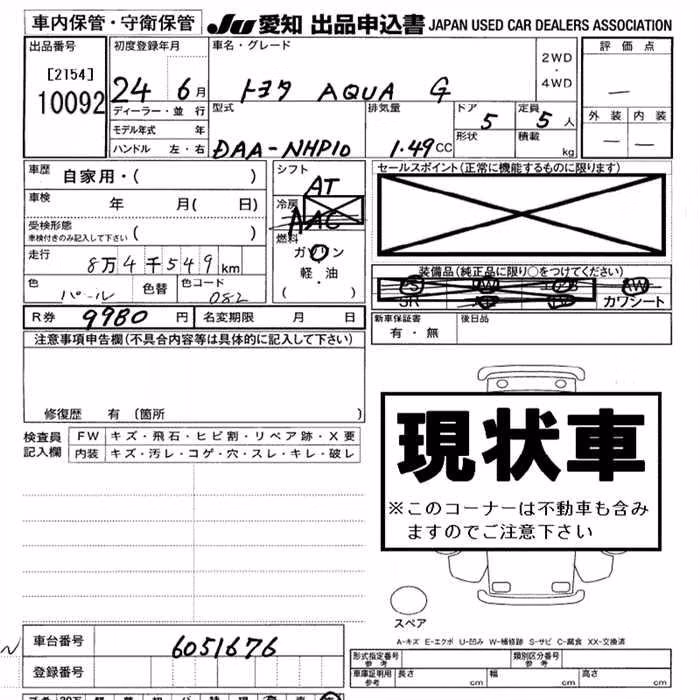 車内保管・守衛保管 JU愛知 出品申込書 JAPAN USED CAR DEALERS ASSOCIATION
出品番号 初度登録年月 車名・グレード 2WD ・ 4WD 評価点
[2154] 10092 24 6月 トヨタ AQUA G —
ディーラー・並行 型式 排気量 ドア 定員 外装 内装
モデル年式 年 5 5人 — —
ハンドル 左・右 DAA-NHP10 1.49CC 形状 積載 kg
車歴 自家用・( ) シフト AT セールスポイント(正常に機能するものに限ります)
車検 年 月( 日) 冷房 AAC
受検形態 ( ) 燃料
車検付きのみ記入して下さい ガソリン
走行 8万4千549km 軽・油 装備品(純品に限り○をつけてください)
色 パール 色替 色コード 082 ( ) PS PW SR カワシート
R券 9980円 名変期限 月 日 新車保証書 有・無 後日品
注意事項申告欄(不具合内容等は具体的に記入して下さい)
修復歴 有(箇所 )
検査員記入欄 FW キズ・飛石・ヒビ割・リペア跡・X要
内装 キズ・汚レ・コゲ・穴・スレ・キレ・破レ
現状車
※このコーナーは不動車も含み
ますのでご注意下さい
スペア
A-キズ E-エクボ U-凹み W-補修跡 S-サビ C-腐食 XX-交換済
車台番号 6051676 形式指定番号 参考 類別区分番号 参考
登録番号 車庫証明用 参考 長さ cm 幅 cm 高さ cm